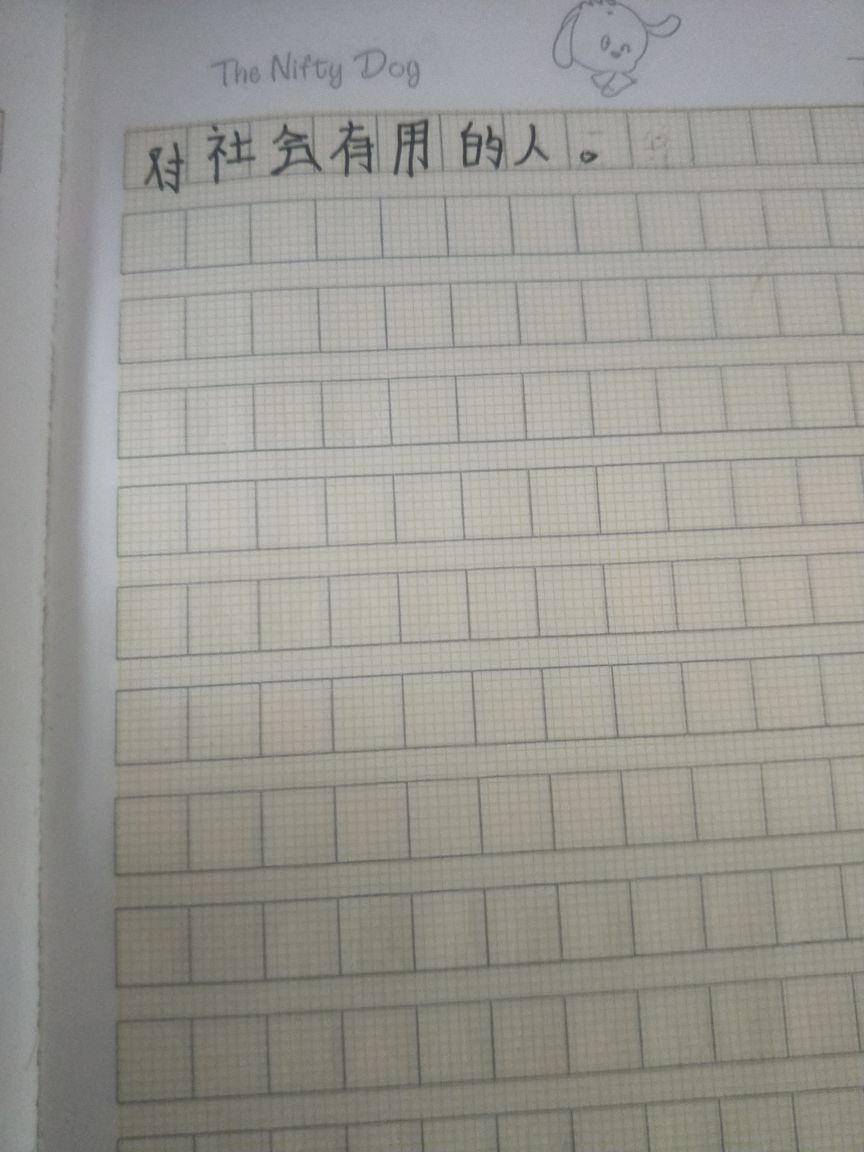 The Nifty Dog
对社会有用的人。